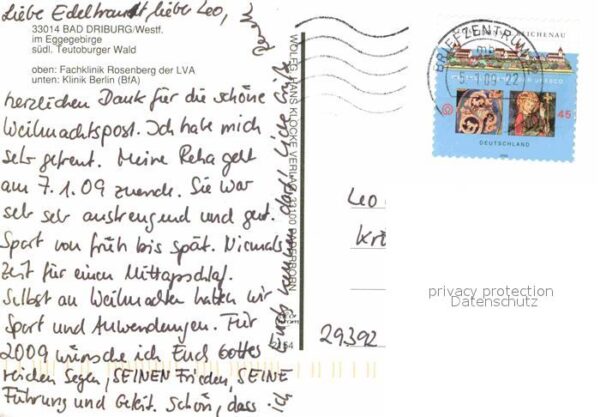 Liebe Edeltraudt, lieber Leo,
33014 BAD DRIBURG/Westf.
im Eggegebirge
südl. Teutoburger Wald
oben: Fachklinik Rosenberg der LVA
unten: Klinik Berlin (BfA)
herzlichen Dank für die schöne
Weihnachtspost. Ich habe mich
sehr gefreut. Meine Reha geht
am 7.1.09 zuende. Sie war
sehr sehr anstrengend und gut.
Sport von früh bis spät. Niemals
Zeit für einen Mittagsschlaf.
Selbst an Weihnachten hatten wir
Sport und Anwendungen. Für
2009 wünsche ich Euch Gottes
reichen Segen, SEINEN Frieden, SEINE
Führung und Geleit. Schön, dass
ich Euch kennen darf! Liebe Grüße
WOLFGANG HANS KLOCKE VERLAG 33100 PADERBORN
BRIEFZENTRUM
REICHENAU
45
DEUTSCHLAND
Leo
Krö
29392
privacy protection
Datenschutz